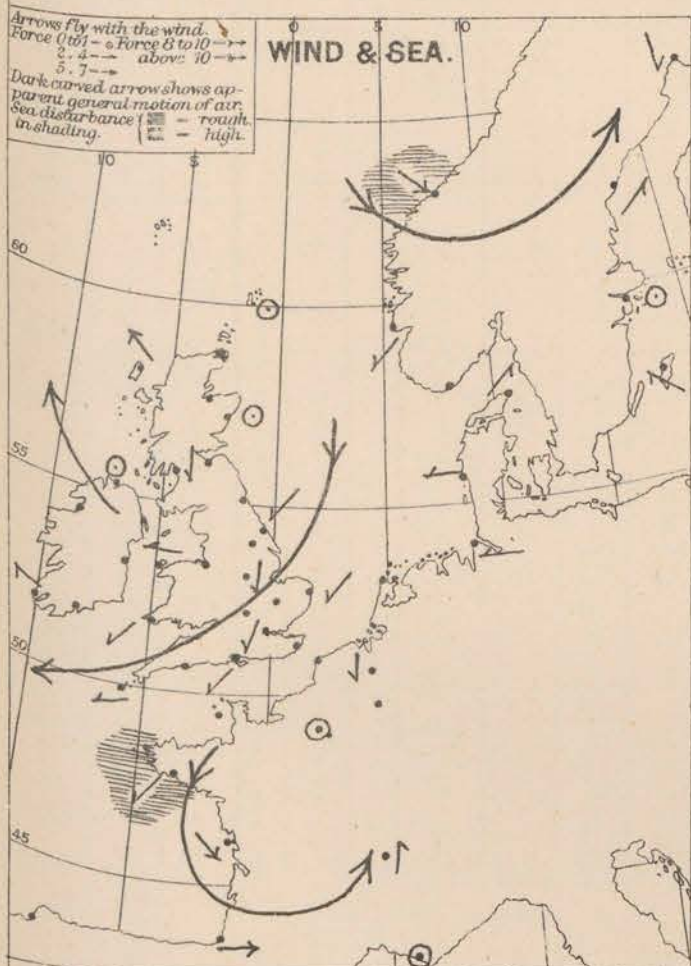 Arrows fly with the wind.
Force 0 to 1 - Force 8 to 10
2 . 4 - above 10
5 . 7 -
Dark curved arrow shows ap-
parent general motion of air.
Sea disturbance { - rough.
in shading. - high.
WIND & SEA.
0 5 10
10 5
60
55
50
45